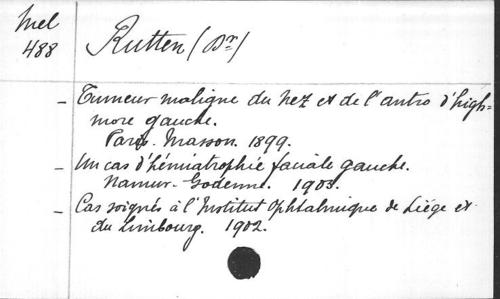 Mel
488
Rutten (Dr)
- Tumeur maligne du nez et de l'antro d'high-
more gauche.
Paris. Masson. 1899.
- Un cas d'hémiatrophie faciale gauche.
Namur. Godenne. 1903.
- Cas soignés à l'Institut Ophtalmique de Liége et
du Limbourg. 1902.